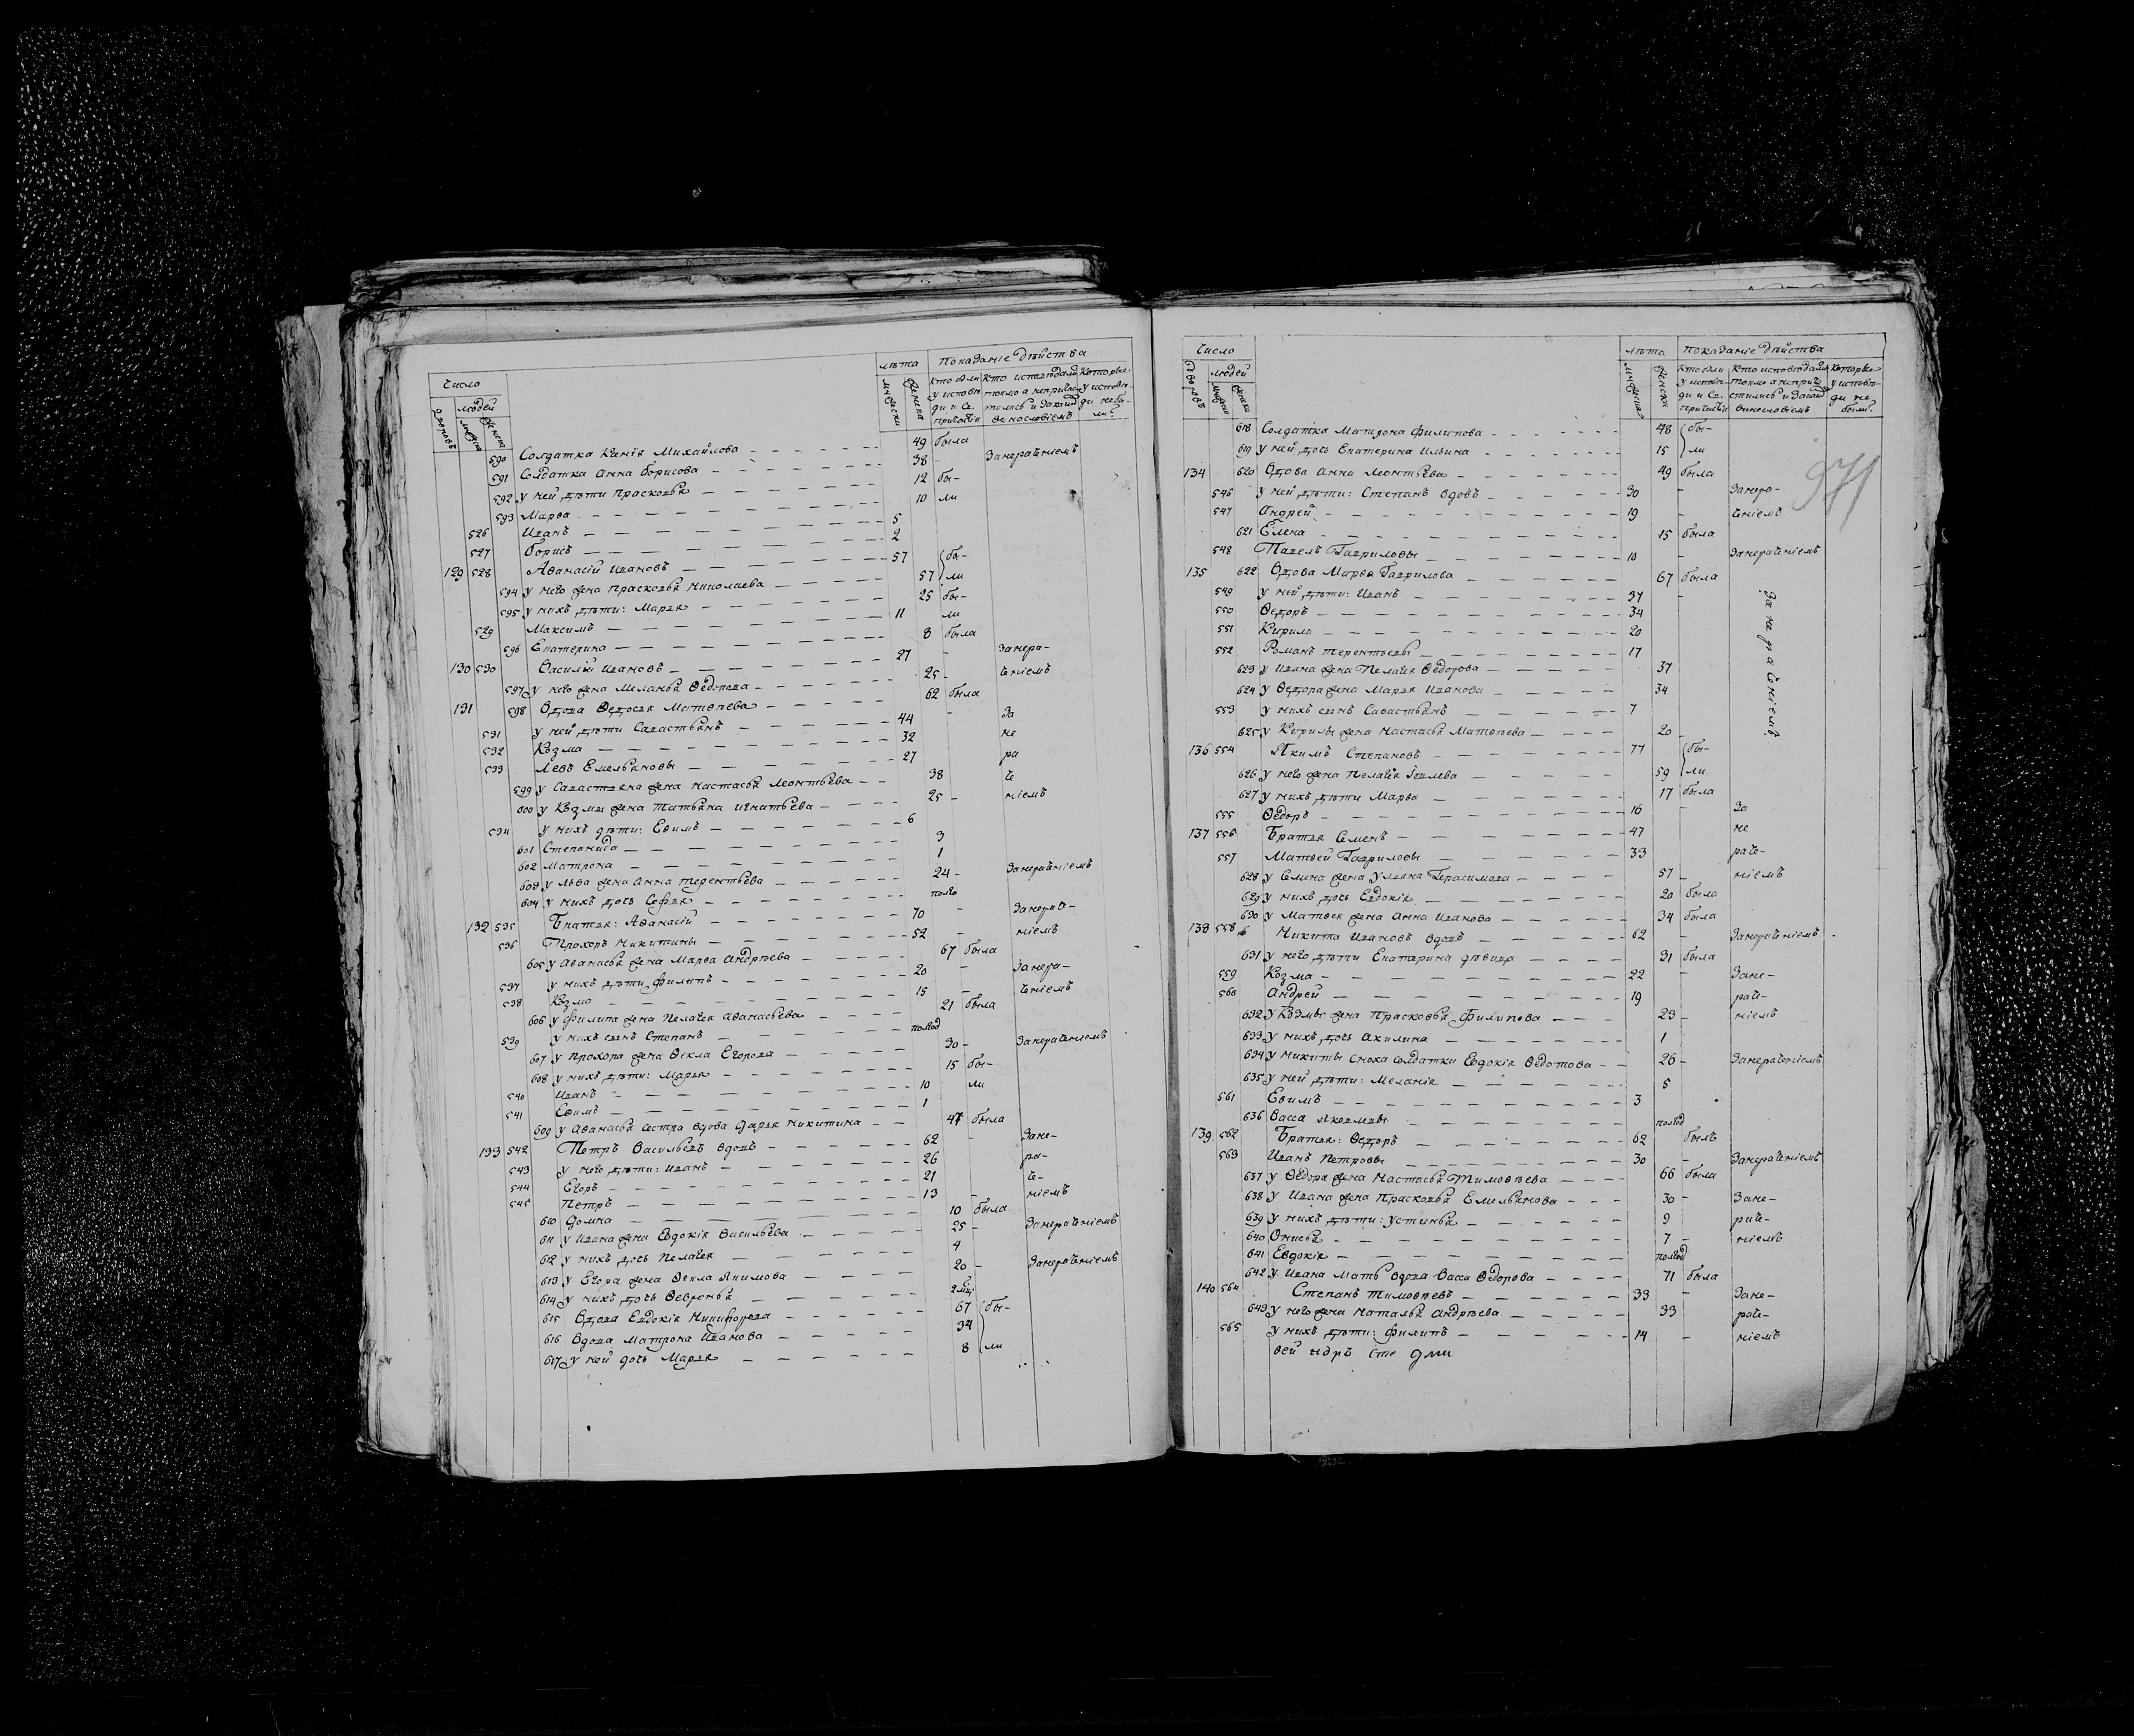 Число
людей
лѣта
Показаніе дѣйства
дворовъ
мужеска
женска
мужеска
женска
кто были у исповѣди и Св. причастія
кто исповѣдались токмо а непричастились и за какимъ винословіемъ
которые у исповѣди не были?
590 Солдатка Ксенія Михайлова 49 была
591 Солдатка Анна Борисова 38 - Занераченіемъ
592 у ней дѣти Прасковья 12 бы-
593 Марва 10 ли
526 Иванъ 5
527 Борисъ 2
129 528 Аѳанасій Ивановъ 57 бы-
594 у него жена Прасковья Николаева 57 ли
595 у нихъ дѣти: Марья 25 бы-
529 Максимъ 11 ли
596 Екатерина 8 была
130 530 Василій Ивановъ 27 - Занера-
597 у него жена Меланья Ѳедорова 25 - ченіемъ
131 598 Вдова Ѳедосья Матвѣева 62 была
531 у ней дѣти Савастьянъ 44 - За
532 Козма 32 не
533 Левъ Емельяновы 27 ра
599 у Савастьяна жена Настасья Леонтьева 38 че
600 у Козмы жена Татьяна Игнатьева 25 - ніемъ
534 у нихъ дѣти: Ефимъ 6
601 Степанида 3
602 Матрона 1
603 у Льва жена Анна Терентьева 24 - Занераченіемъ
604 у нихъ дочь Софья полго
132 535 Братья: Аѳанасій 70 - Занераче-
536 Прохоръ Никитины 52 - ніемъ
605 у Аѳанасья жена Марва Андрѣева 67 была
537 у нихъ дѣти Филипъ 20 - Занера-
538 Козма 15 - ченіемъ
606 у Филипа жена Пелагея Аѳанасьева 21 была
539 у нихъ сынъ Степанъ полгод
607 у Прохора жена Ѳекла Егорова 30 - Занераченіемъ
608 у нихъ дѣти: Марья 15 бы-
540 Иванъ 10 ли
541 Ефимъ 1
609 у Аѳанасья сестра вдова Дарья Никитина 47 была
133 542 Петръ Васильевъ вдовъ 62 - Зане-
543 у него дѣти: Иванъ 26 ра-
544 Егоръ 21 че-
545 Петръ 13 - ніемъ
610 Домна 10 была
611 у Ивана жена Евдокія Васильева 25 - Занераченіемъ
612 у нихъ дочь Пелагея 4
613 у Егора жена Ѳекла Якимова 20 - Занераченіемъ
614 у нихъ дочь Ѳевронья 2 мѣц
615 Вдова Евдокія Никифорова 67 бы-
616 Вдова Матрона Иванова 34
617 у ней дочь Марья 8 ли
Число
людей
лѣта
Показаніе дѣйства
дворовъ
мужеска
женска
мужеска
женска
кто были у исповѣди и Св. причастія
кто исповѣдались токмо а непричастились и за какимъ винословіемъ
которые у исповѣди не были?
971
618 Солдатка Матрона Филипова 48 бы-
619 у ней дочь Екатерина Ильина 15 ли
134 620 Вдова Анна Леонтьева 49 была
546 у ней дѣти: Степанъ вдовъ 30 - Занера-
547 Андрей 19 - ченіемъ
621 Елена 15 была
548 Павелъ Гавриловы 10 - Занераченіемъ
135 622 Вдова Марва Гаврилова 67 была
549 у ней дѣти: Иванъ 37 -
550 Ѳедоръ 34
551 Кирила 20
552 Романъ Терентьевы 17
Занераченіемъ
623 у Ивана жена Пелагея Ѳедорова 37
624 у Ѳедора жена Марья Иванова 34
553 у нихъ сынъ Савастьянъ 7
625 у Кирилы жена Настасья Матвѣева 20 -
136 554 Якимъ Степановъ 77 бы-
626 у него жена Пелагея Іовлева 59 ли
627 у нихъ дѣти Марва 17 была
555 Ѳедоръ 16 - За
137 556 Братья Семенъ 47 не
557 Матвей Гавриловы 33 раче-
628 у Семена жена Ульяна Герасимова 57 - ніемъ
629 у нихъ дочь Евдокія 20 была
630 у Матвея жена Анна Иванова 34 была
138 558 Никита Ивановъ вдовъ 62 - Занераченіемъ
631 у него дѣти Екатерина дѣвица 31 была
559 Козма 22 - Зане-
560 Андрей 19 раче-
632 у Козмы жена Прасковья Филипова 23 - ніемъ
633 у нихъ дочь Акилина 1
634 у Никиты сноха солдатка Евдокія Ѳедотова 26 - Занераченіемъ
635 у ней дѣти: Меланія 5
561 Ефимъ 3
636 Васса Яковлевы полгод
139 562 Братья: Ѳедоръ 62 былъ
563 Иванъ Петровы 30 - Занераченіемъ
637 у Ѳедора жена Настасья Тимоѳѣева 66 была
638 у Ивана жена Прасковья Емельянова 30 - Зане-
639 у нихъ дѣти: Устинья 9 раче-
640 Онисья 7 - ніемъ
641 Евдокія полгод
642 у Ивана мать вдова Васса Ѳедорова 71 была
140 564 Степанъ Тимоѳеевъ 33 - Зане-
643 у него жена Наталья Андрѣева 33 раче-
565 у нихъ дѣти: Филипъ 14 - ніемъ